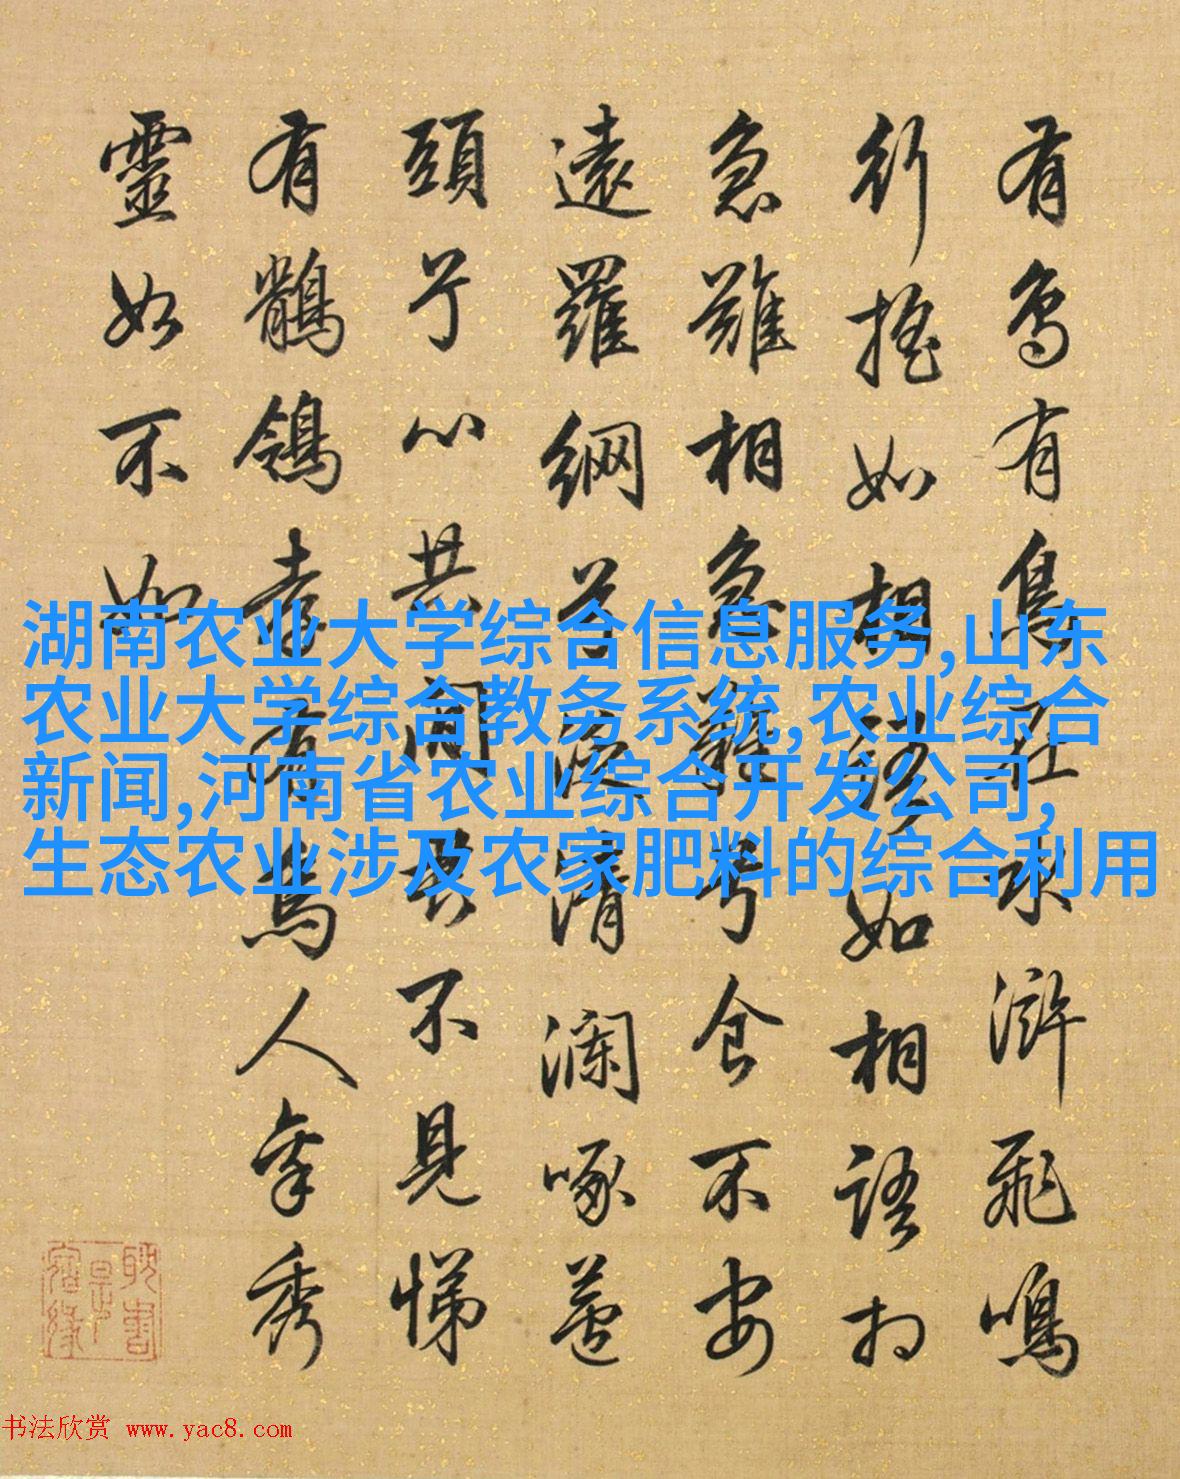 有鳥有鳥在水滸飛鳴
行搖如相語如相語
急難相急難兮食不安
遠羅網兮清瀾啄蘆
頭兮心共不見悌
有鶺鴒孝有烏人秀
靈如不如
湖南农业大学综合信息服务,山东
农业大学综合教务系统,农业综合
新闻,河南省农业综合开发公司,
生态农业涉及农家肥料的综合利用
书法欣赏 www.yac8.com